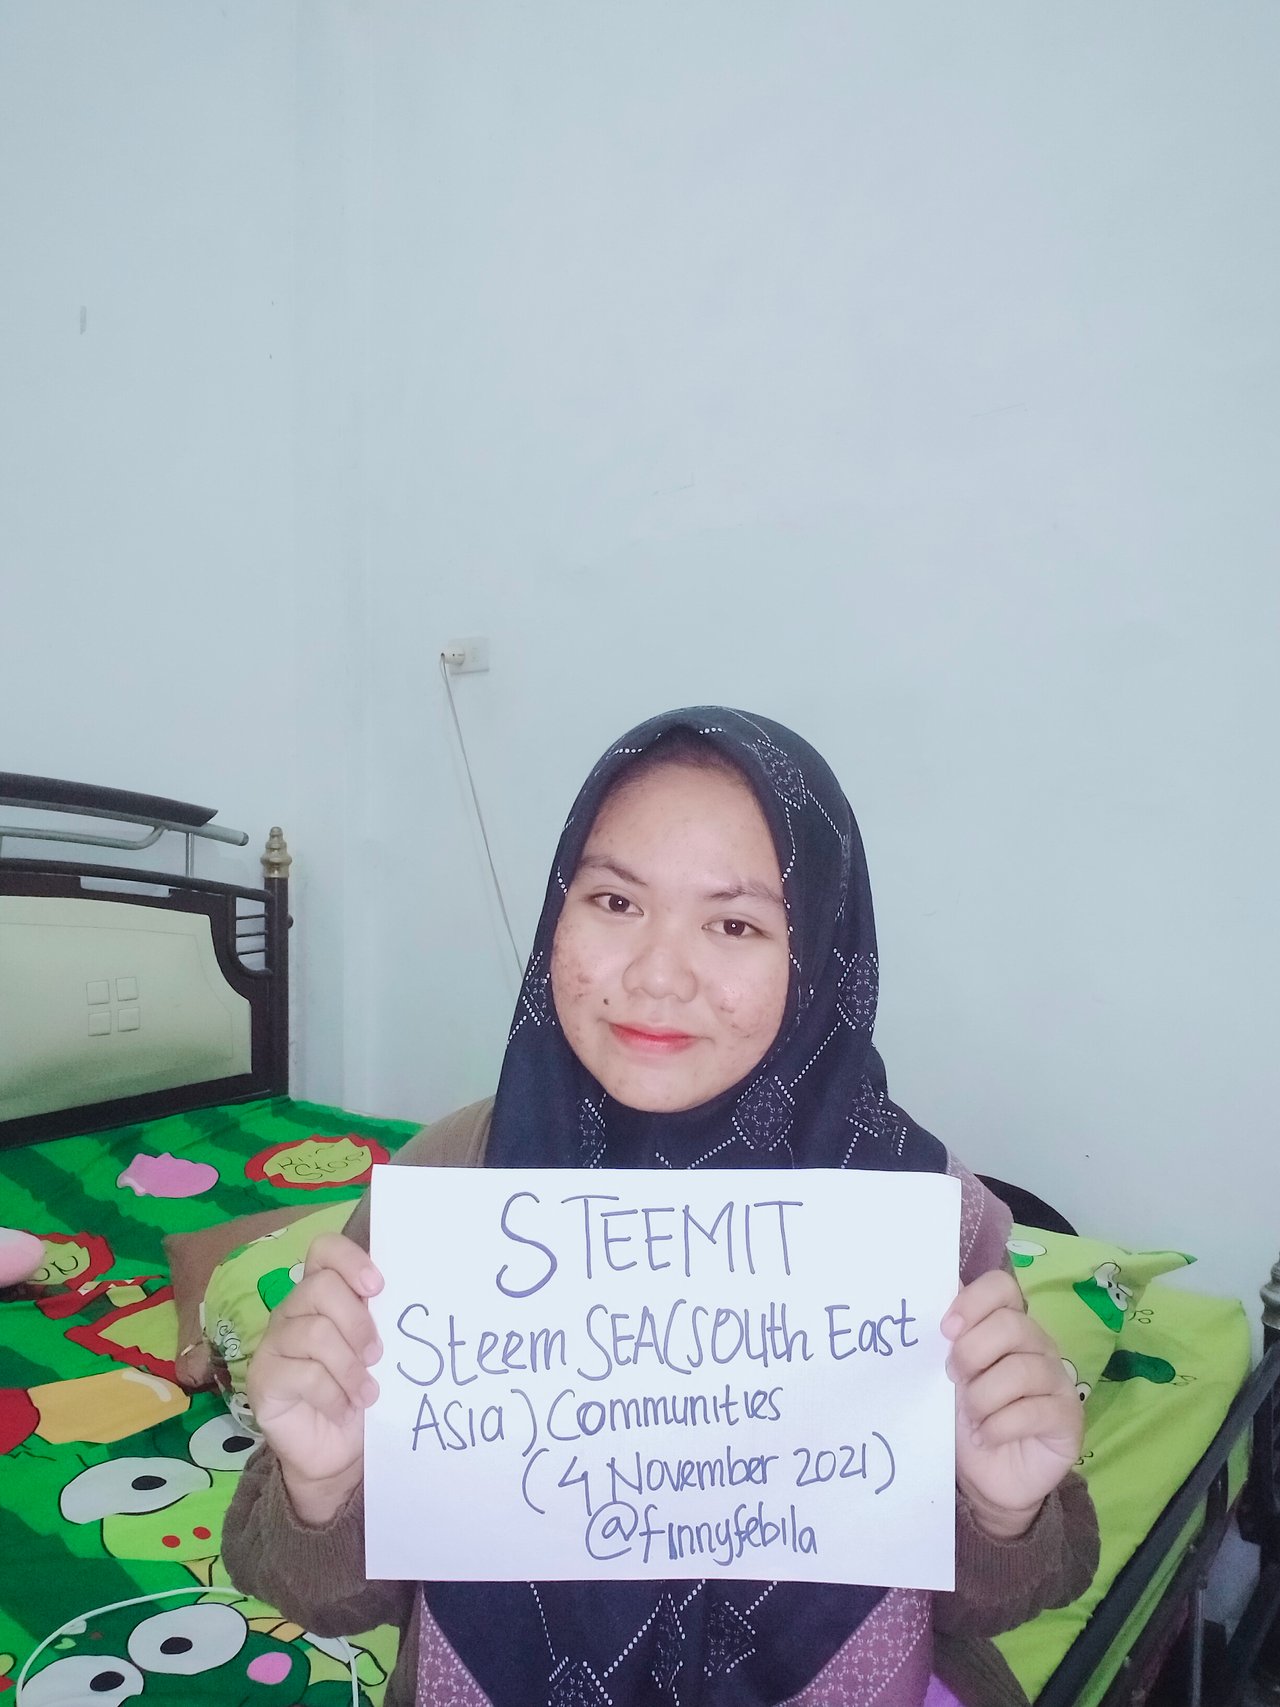 STEEMIT
Steem SEA(South East
Asia) Communities
(4 November 2021)
@finnyfebila
Stop